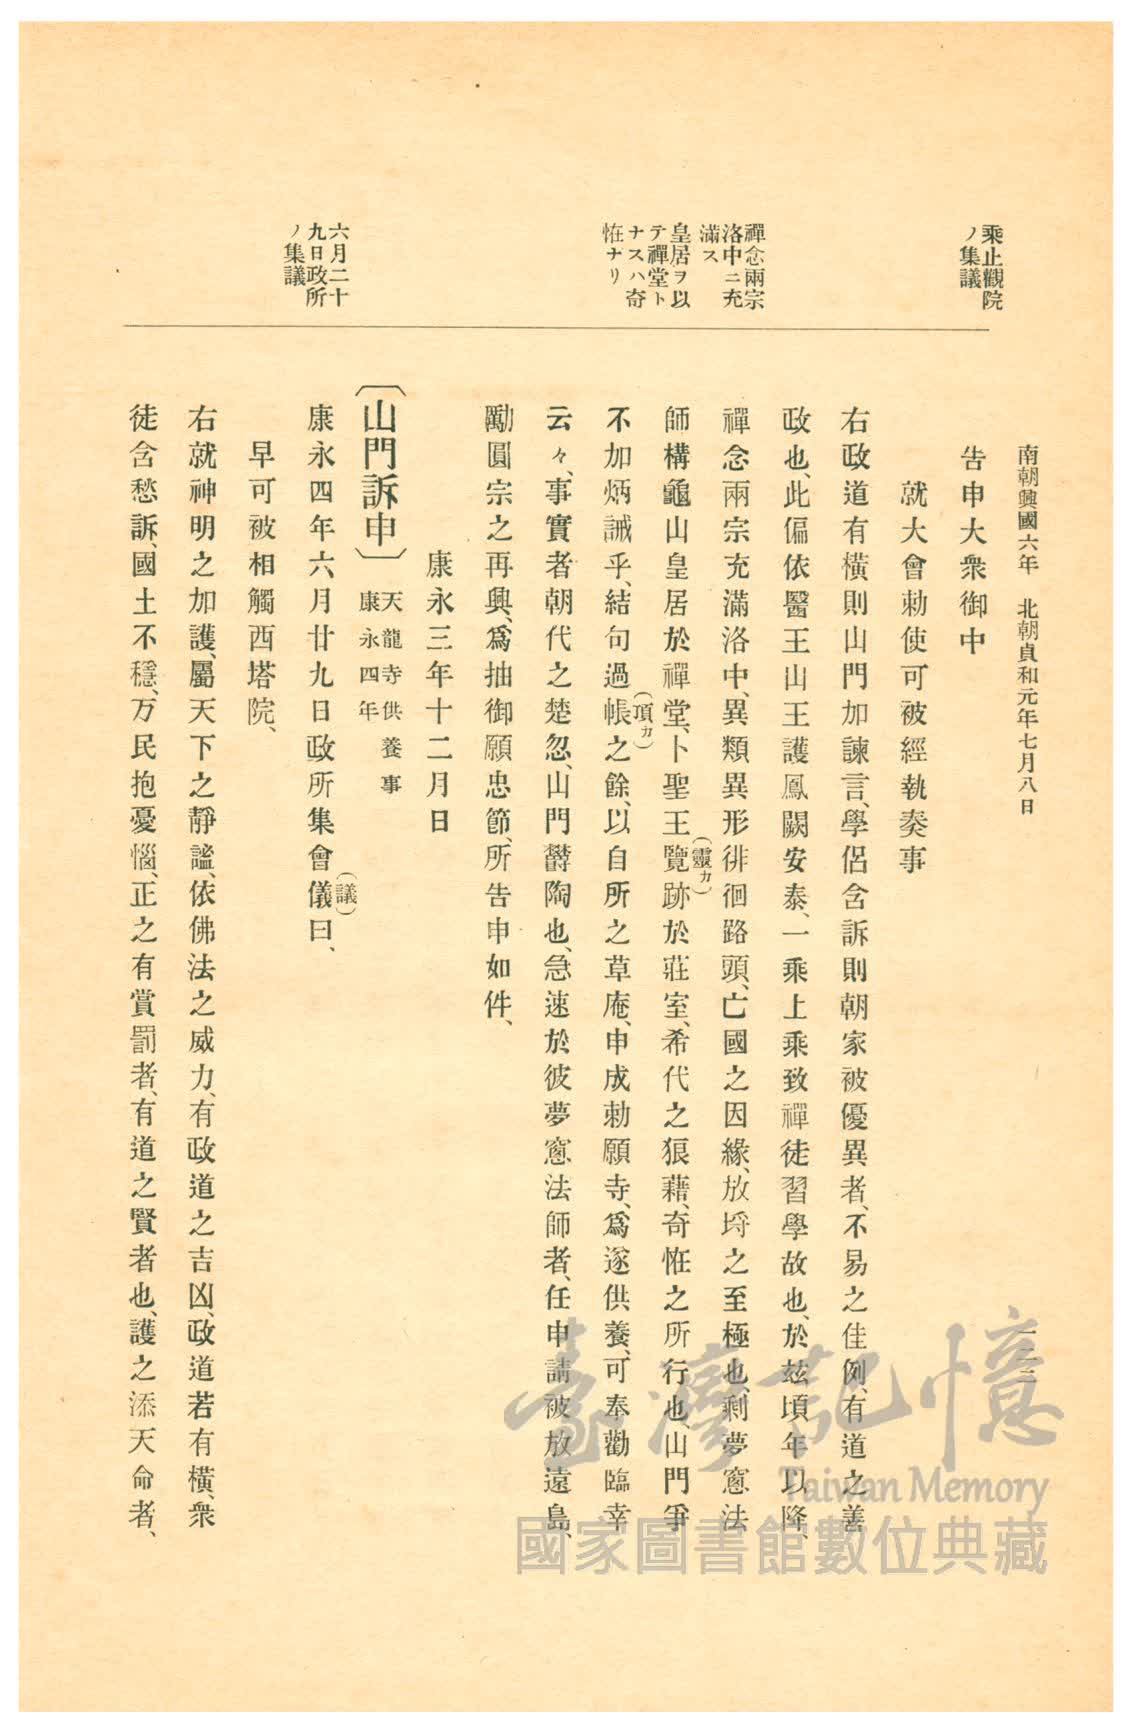 南朝興國六年　北朝貞和元年七月八日
一二三
乘止觀院
ノ集議
禪念兩宗
洛中ニ充
滿ス
皇居ヲ以
テ禪堂ト
ナスハ奇
恠ナリ
六月二十
九日政所
ノ集議
告申大衆御中
就大會勅使可被經執奏事
右政道有橫則山門加諫言、學侶含訴則朝家被優異者、不易之佳例、有道之善
政也、此偏依醫王山王護鳳闕安泰、一乘上乘致禪徒習學故也、於玆頃年以降、
禪念兩宗充滿洛中、異類異形徘徊路頭、亡國之因緣、放埒之至極也、剩夢窻法
師構龜山皇居於禪堂、卜聖王覽(靈カ)跡於莊室、希代之狼藉、奇恠之所行也、山門爭
不加炳誡乎、結句過帳(項カ)之餘、以自所之草庵、申成勅願寺、爲遂供養、可奉勸臨幸
云々、事實者朝代之楚忽、山門欝陶也、急速於彼夢窻法師者、任申請被放遠島、
勵圓宗之再興、爲抽御願忠節、所告申如件、
康永三年十二月日
〔山門訴申〕天龍寺供養事
康永四年
康永四年六月廿九日政所集會儀(議)曰、
早可被相觸西塔院、
右就神明之加護、屬天下之靜謐、依佛法之威力、有政道之吉凶、政道若有橫、衆
徒含愁訴、國土不穩、万民抱憂惱、正之有賞罰者、有道之賢者也、護之添天命者、
臺灣記憶
Taiwan Memory
國家圖書館數位典藏